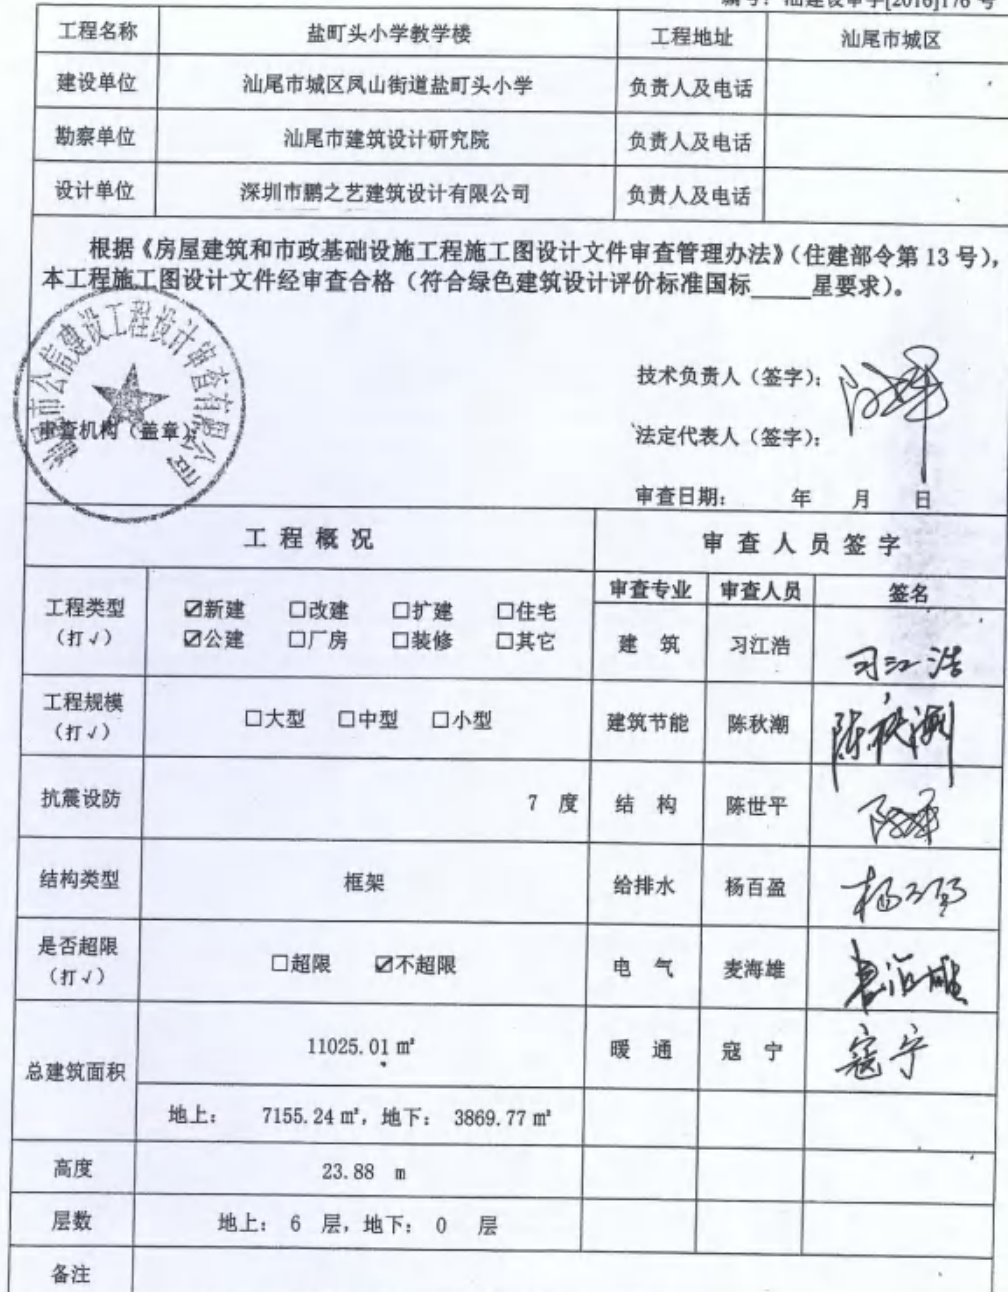 编号：汕建设审字[2016]176 号
工程名称 盐町头小学教学楼 工程地址 汕尾市城区
建设单位 汕尾市城区凤山街道盐町头小学 负责人及电话
勘察单位 汕尾市建筑设计研究院 负责人及电话
设计单位 深圳市鹏之艺建筑设计有限公司 负责人及电话
根据《房屋建筑和市政基础设施工程施工图设计文件审查管理办法》（住建部令第 13 号），
本工程施工图设计文件经审查合格（符合绿色建筑设计评价标准国标_____星要求）。
市公信建设工程设计审查有限公司
技术负责人（签字）：
审查机构（盖章）
法定代表人（签字）：
审查日期： 年 月 日
工 程 概 况 审 查 人 员 签 字
审查专业 审查人员 签名
工程类型
（打√）
☑新建 □改建 □扩建 □住宅
☑公建 □厂房 □装修 □其它
建 筑 习江浩 习江浩
工程规模
（打√）
□大型 □中型 □小型 建筑节能 陈秋潮 陈秋潮
抗震设防 7 度 结 构 陈世平
结构类型 框架 给排水 杨百盈
是否超限
（打√）
□超限 ☑不超限 电 气 麦海雄 麦海雄
总建筑面积
11025.01 m² 暖 通 寇 宁 寇宁
地上： 7155.24 m²，地下： 3869.77 m²
高度 23.88 m
层数 地上： 6 层，地下： 0 层
备注